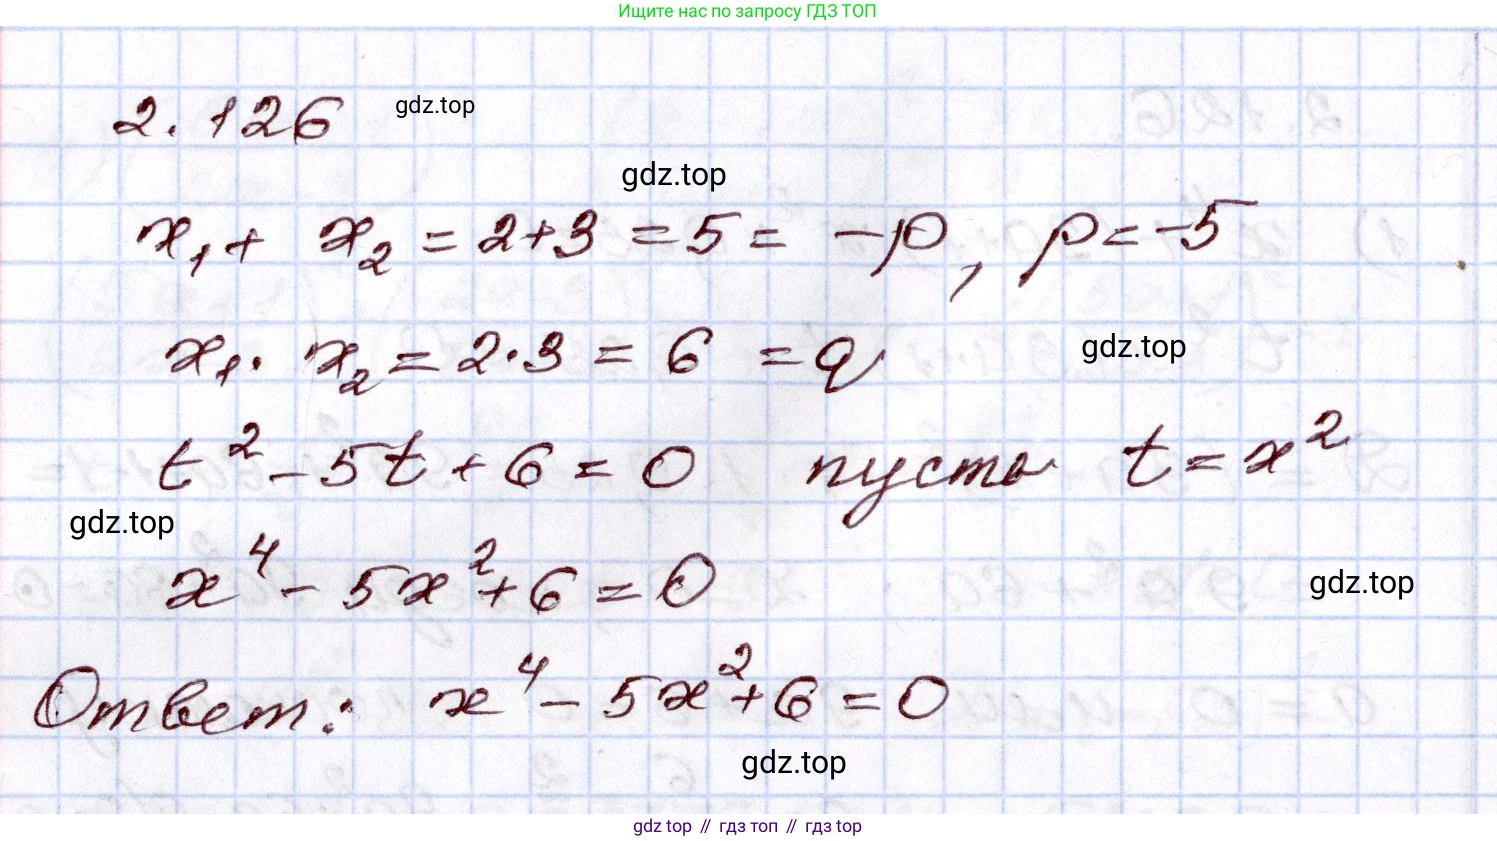 Ищите нас по запросу ГДЗ ТОП
2.126 gdz.top
gdz.top
x₁ + x₂ = 2+3 = 5 = -p, p = -5
x₁ · x₂ = 2·3 = 6 = q gdz.top
t² - 5t + 6 = 0 пусть t = x²
gdz.top
x⁴ - 5x² + 6 = 0
gdz.top
Ответ: x⁴ - 5x² + 6 = 0
gdz.top
gdz top // гдз топ // гдз top